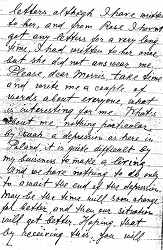 letters, although I have written
to her, and from Rose I haven't
got any letters for a very long
time, I had written to her once
but she did not answer me.
Please dear Morris, take some
and write me a couple of
words about everyone, what
is interesting you me. What's
about me, nothing particular,
by such a depression as there is in
Poland, it is quite difficult by
my business to make a living
and we have nothing to do only
to await the end of the depression.
May be the time will soon change
for better, and then our situation
will get better. Hoping that
by receiving this, you will